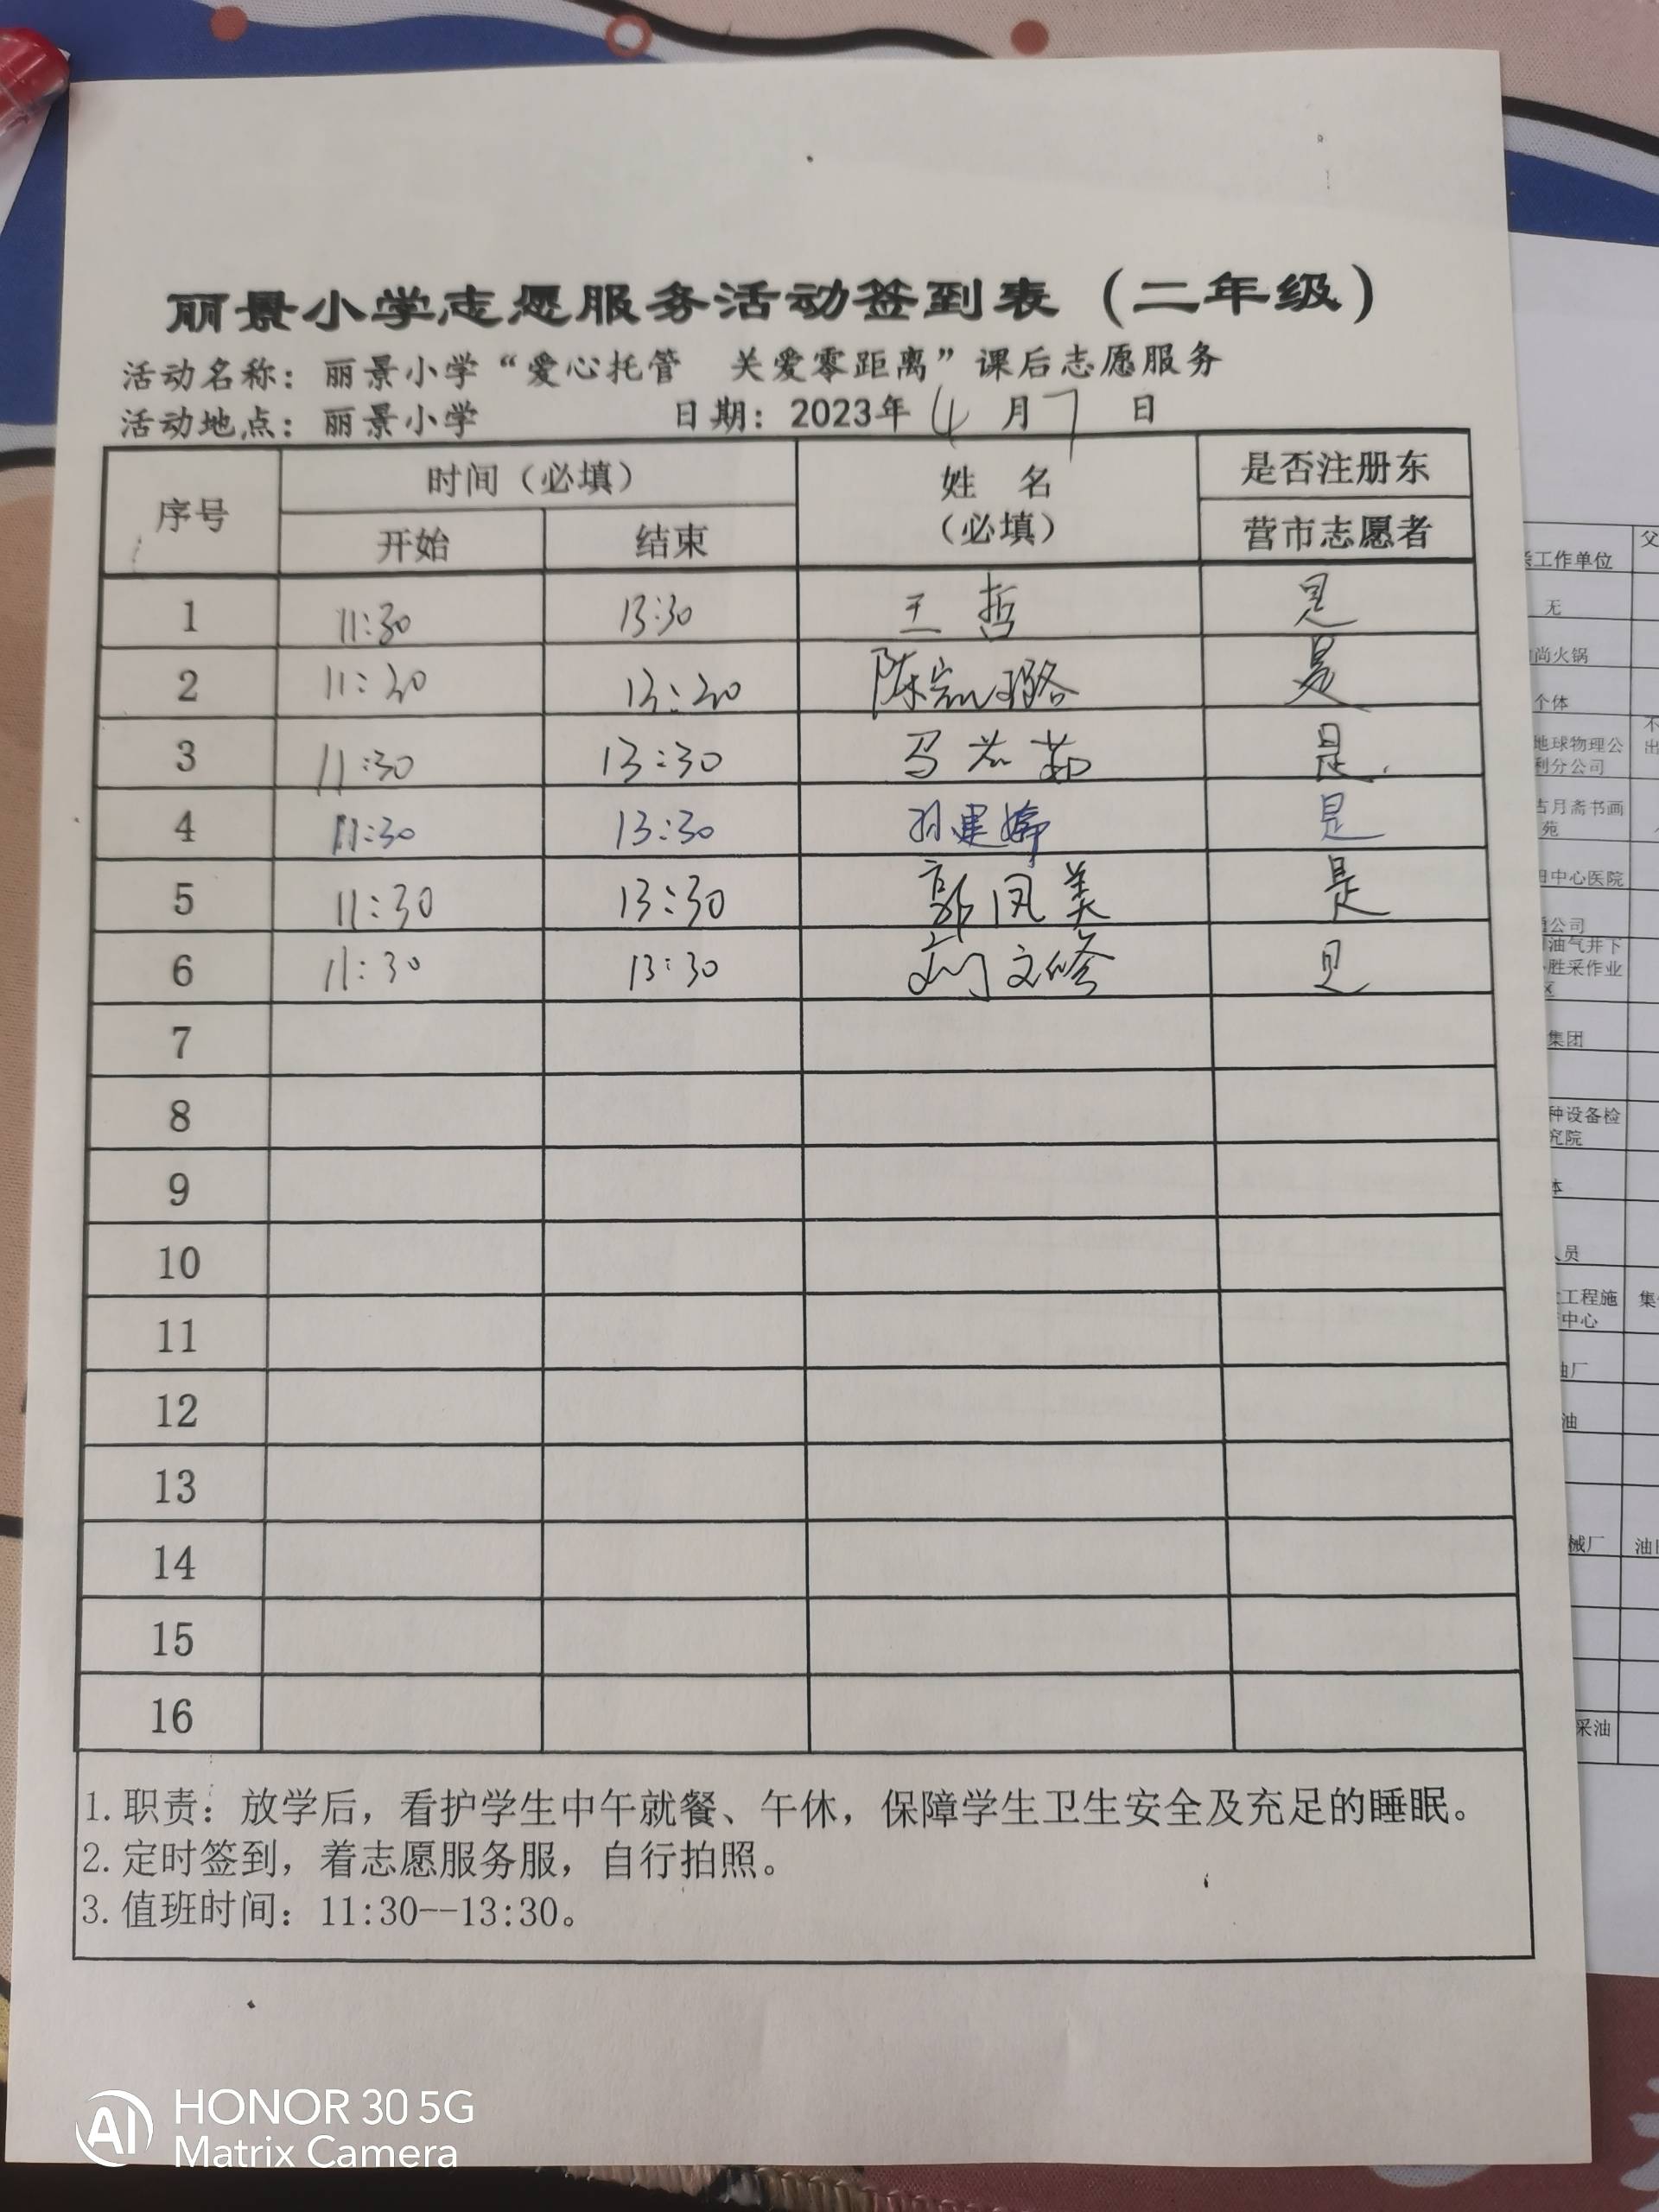 丽景小学志愿服务活动签到表（二年级）
活动名称：丽景小学“爱心托管 关爱零距离”课后志愿服务
活动地点：丽景小学 日期：2023年4月7日
序号 时间（必填） 姓 名（必填） 是否注册东营市志愿者
开始 结束
1 11:30 13:30 王哲 是
2 11:30 13:30 陈 璐 是
3 11:30 13:30 马 茹 是
4 11:30 13:30 孙建婷 是
5 11:30 13:30 郭凤美 是
6 11:30 13:30 刘文修 是
7
8
9
10
11
12
13
14
15
16
1.职责：放学后，看护学生中午就餐、午休，保障学生卫生安全及充足的睡眠。
2.定时签到，着志愿服务服，自行拍照。
3.值班时间：11:30--13:30。
工作单位
无
尚火锅
个体
地球物理公
利分公司
古月斋书画
苑
中心医院
公司
油气井下
胜采作业
区
集团
种设备检
究院
体
人员
工程施
中心
油厂
油
械厂
采油
HONOR 30 5G
Matrix Camera
AI